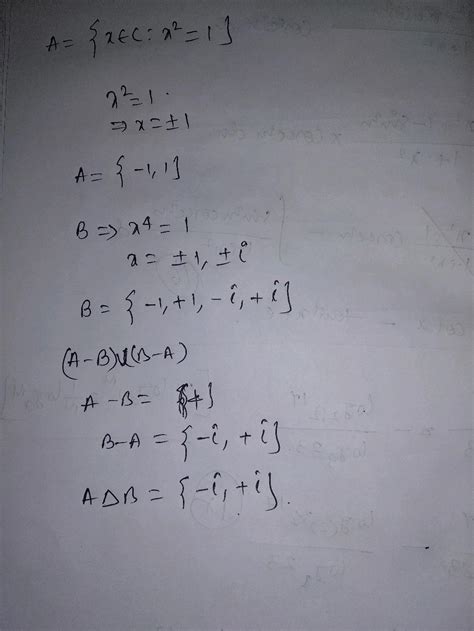 A = {x∈C: x² = 1}
x² = 1.
⇒ x = ±1
A = {-1, 1}
B ⇒ x⁴ = 1
x = ±1, ±i
B = {-1, +1, -i, +i}
(A-B)∪(B-A)
A - B = { }
B-A = {-i, +i}
A∆B = {-i, +i}.